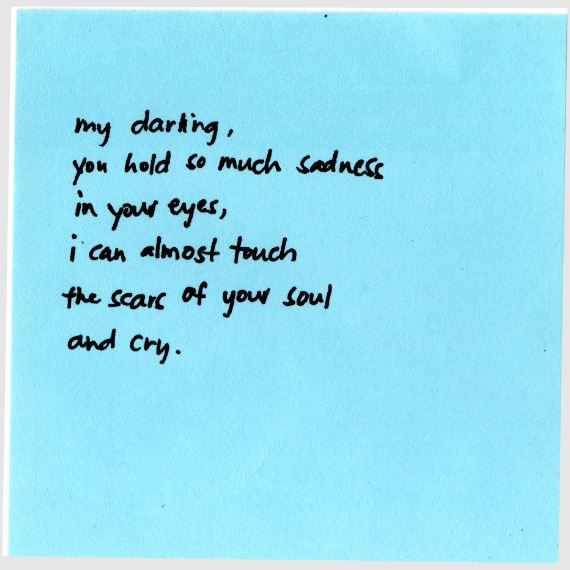 my darling,
you hold so much sadness
in your eyes,
i can almost touch
the scars of your soul
and cry.